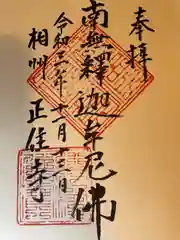 奉拝
南無釋迦牟尼佛
令和二年十一月十三日
相州
正住寺